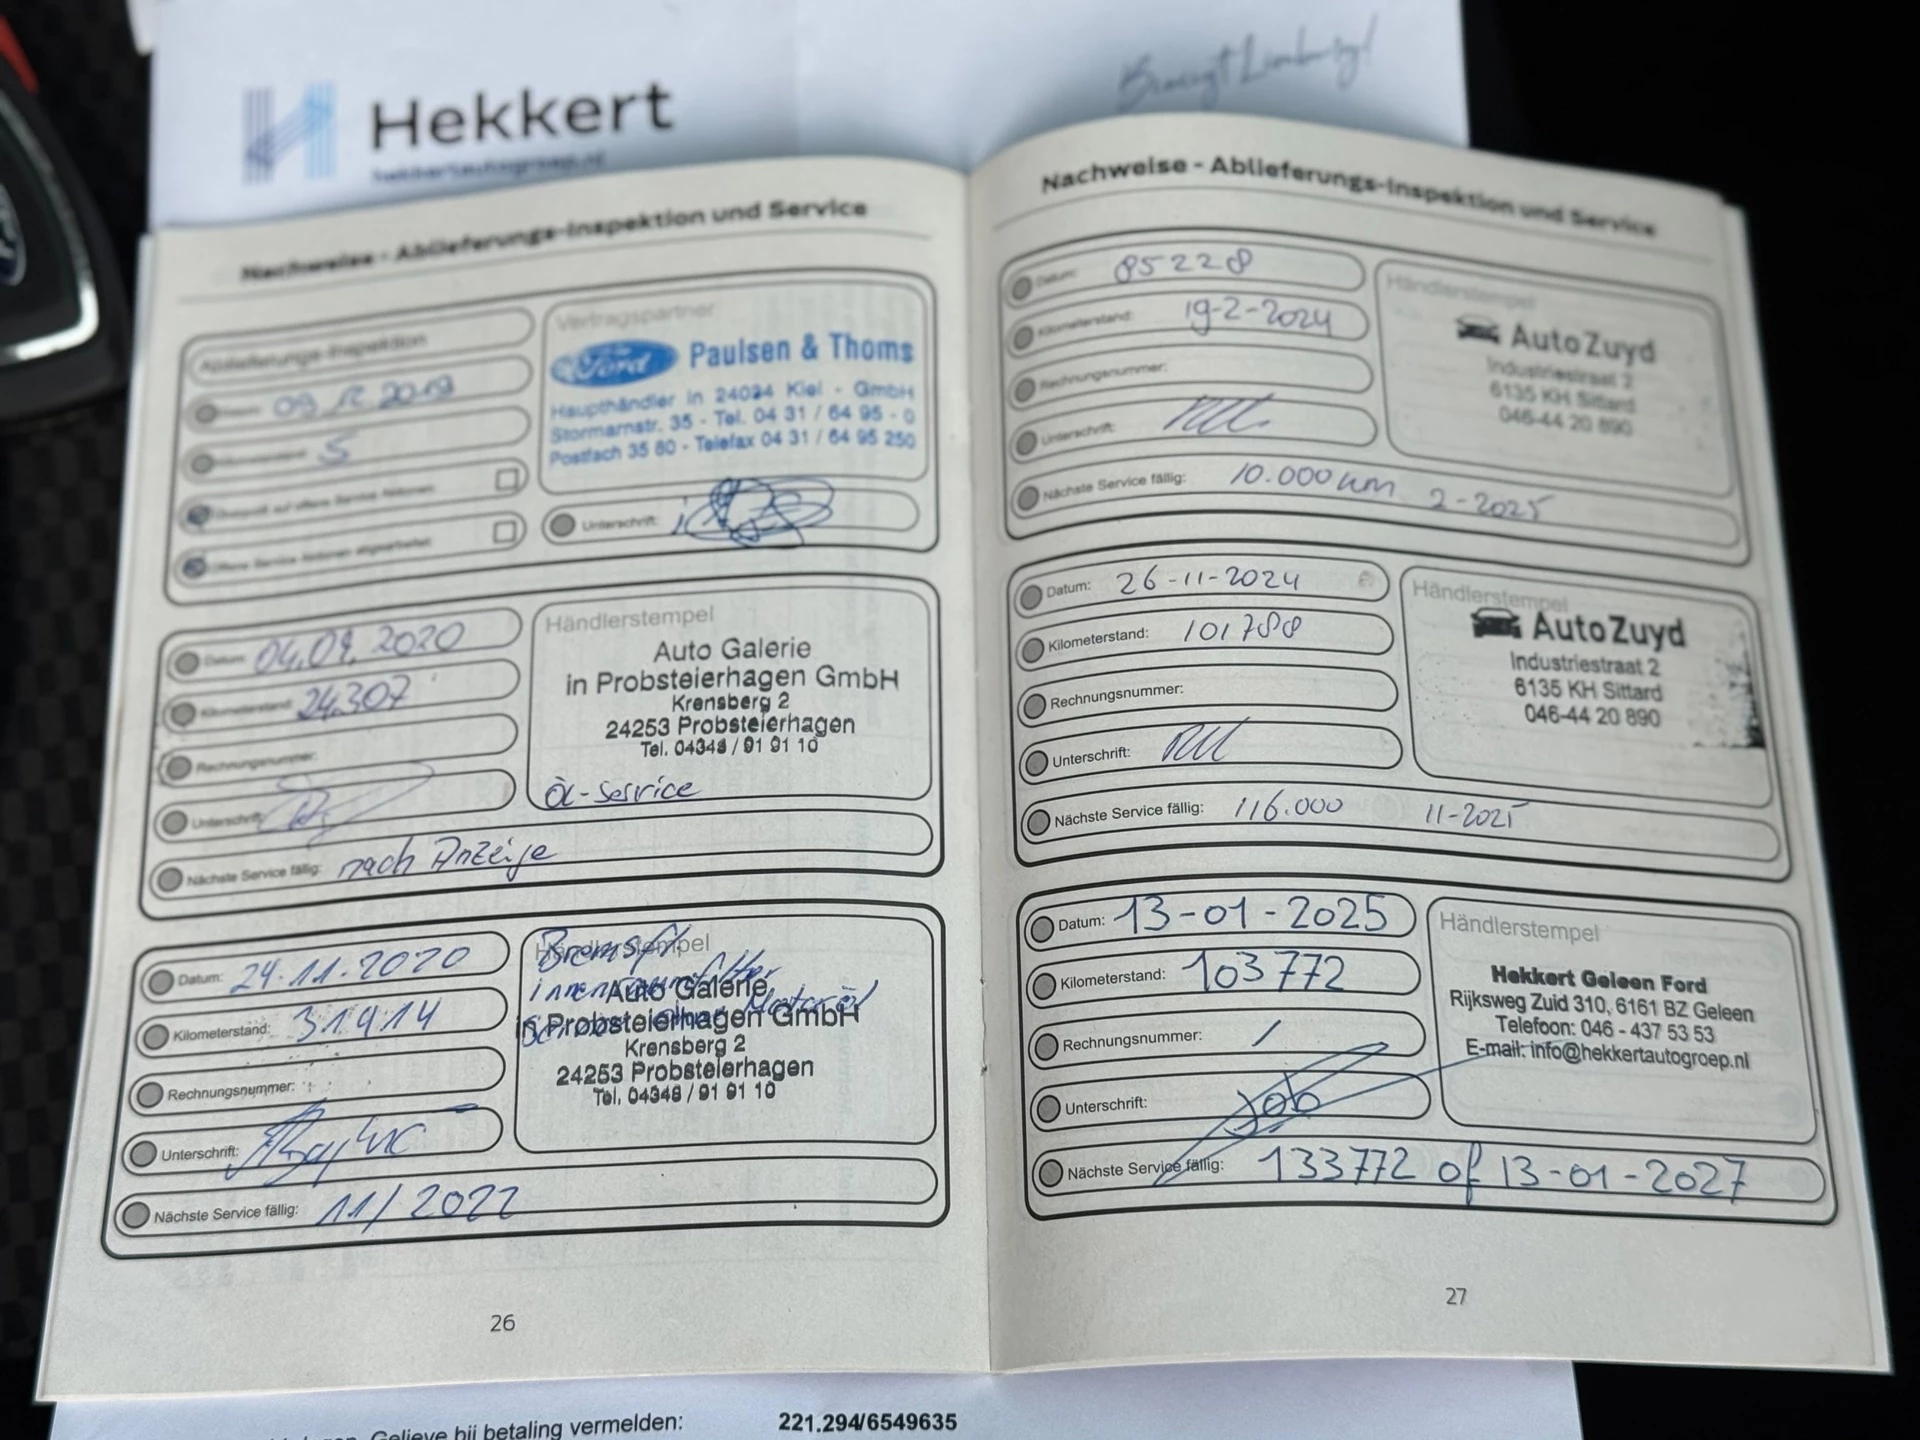 Hekkert
hekkertautogroep.nl
Nachweise - Ablieferungs-Inspektion und Service
Ablieferungs-Inspektion
Datum: 09.12.2019
Kilometerstand: 5
Offene Service Aktionen abgearbeitet
Vertragspartner
Ford Paulsen & Thoms
Haupthändler in 24034 Kiel - GmbH
Stormarnstr. 35 - Tel. 04 31 / 64 95 - 0
Postfach 35 80 - Telefax 04 31 / 64 95 250
Unterschrift:
Datum: 04.09.2020
Kilometerstand: 24.307
Rechnungsnummer:
Unterschrift:
Händlerstempel
Auto Galerie
in Probsteierhagen GmbH
Krensberg 2
24253 Probsteierhagen
Tel. 04348 / 91 91 10
Öl-Service
Nächste Service fällig: nach Anzeige
Datum: 24.11.2020
Kilometerstand: 31914
Rechnungsnummer:
Unterschrift:
Händlerstempel
Auto Galerie
in Probsteierhagen GmbH
Krensberg 2
24253 Probsteierhagen
Tel. 04348 / 91 91 10
Motoröl
Nächste Service fällig: 11/2022
26
Nachweise - Ablieferungs-Inspektion und Service
Datum: 85228
Kilometerstand: 19-2-2024
Rechnungsnummer:
Unterschrift:
Händlerstempel
AutoZuyd
Industriestraat 2
6135 KH Sittard
046-44 20 890
Nächste Service fällig: 10.000 km 2-2025
Datum: 26-11-2024
Kilometerstand: 101788
Rechnungsnummer:
Unterschrift:
Händlerstempel
AutoZuyd
Industriestraat 2
6135 KH Sittard
046-44 20 890
Nächste Service fällig: 116.000 11-2025
Datum: 13-01-2025
Kilometerstand: 103772
Rechnungsnummer: /
Unterschrift: Job
Händlerstempel
Hekkert Geleen Ford
Rijksweg Zuid 310, 6161 BZ Geleen
Telefoon: 046 - 437 53 53
E-mail: info@hekkertautogroep.nl
Nächste Service fällig: 133772 of 13-01-2027
27
Gelieve bij betaling vermelden: 221.294/6549635